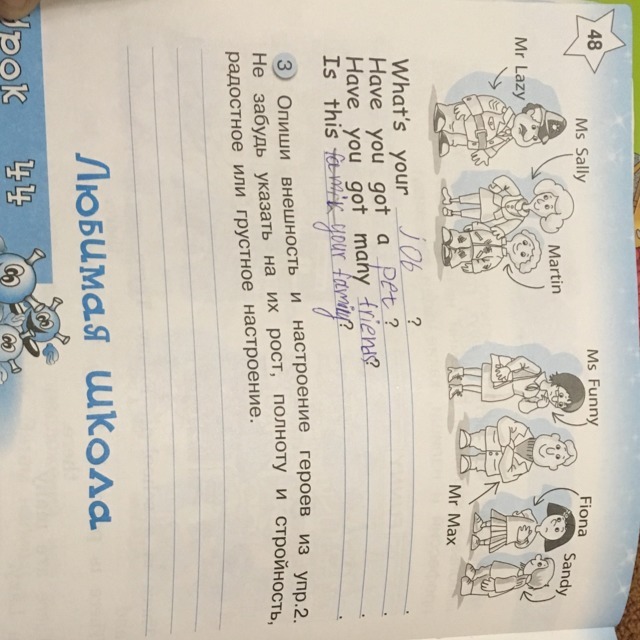 48
Mr Lazy
Ms Sally
Martin
Ms Funny
Mr Max
Fiona
Sandy
What's your job ?
Have you got a pet ?
Have you got many friends?
Is this your family?
3 Опиши внешность и настроение героев из упр.2.
Не забудь указать на их рост, полноту и стройность,
радостное или грустное настроение.
Любимая школа
Урок 44